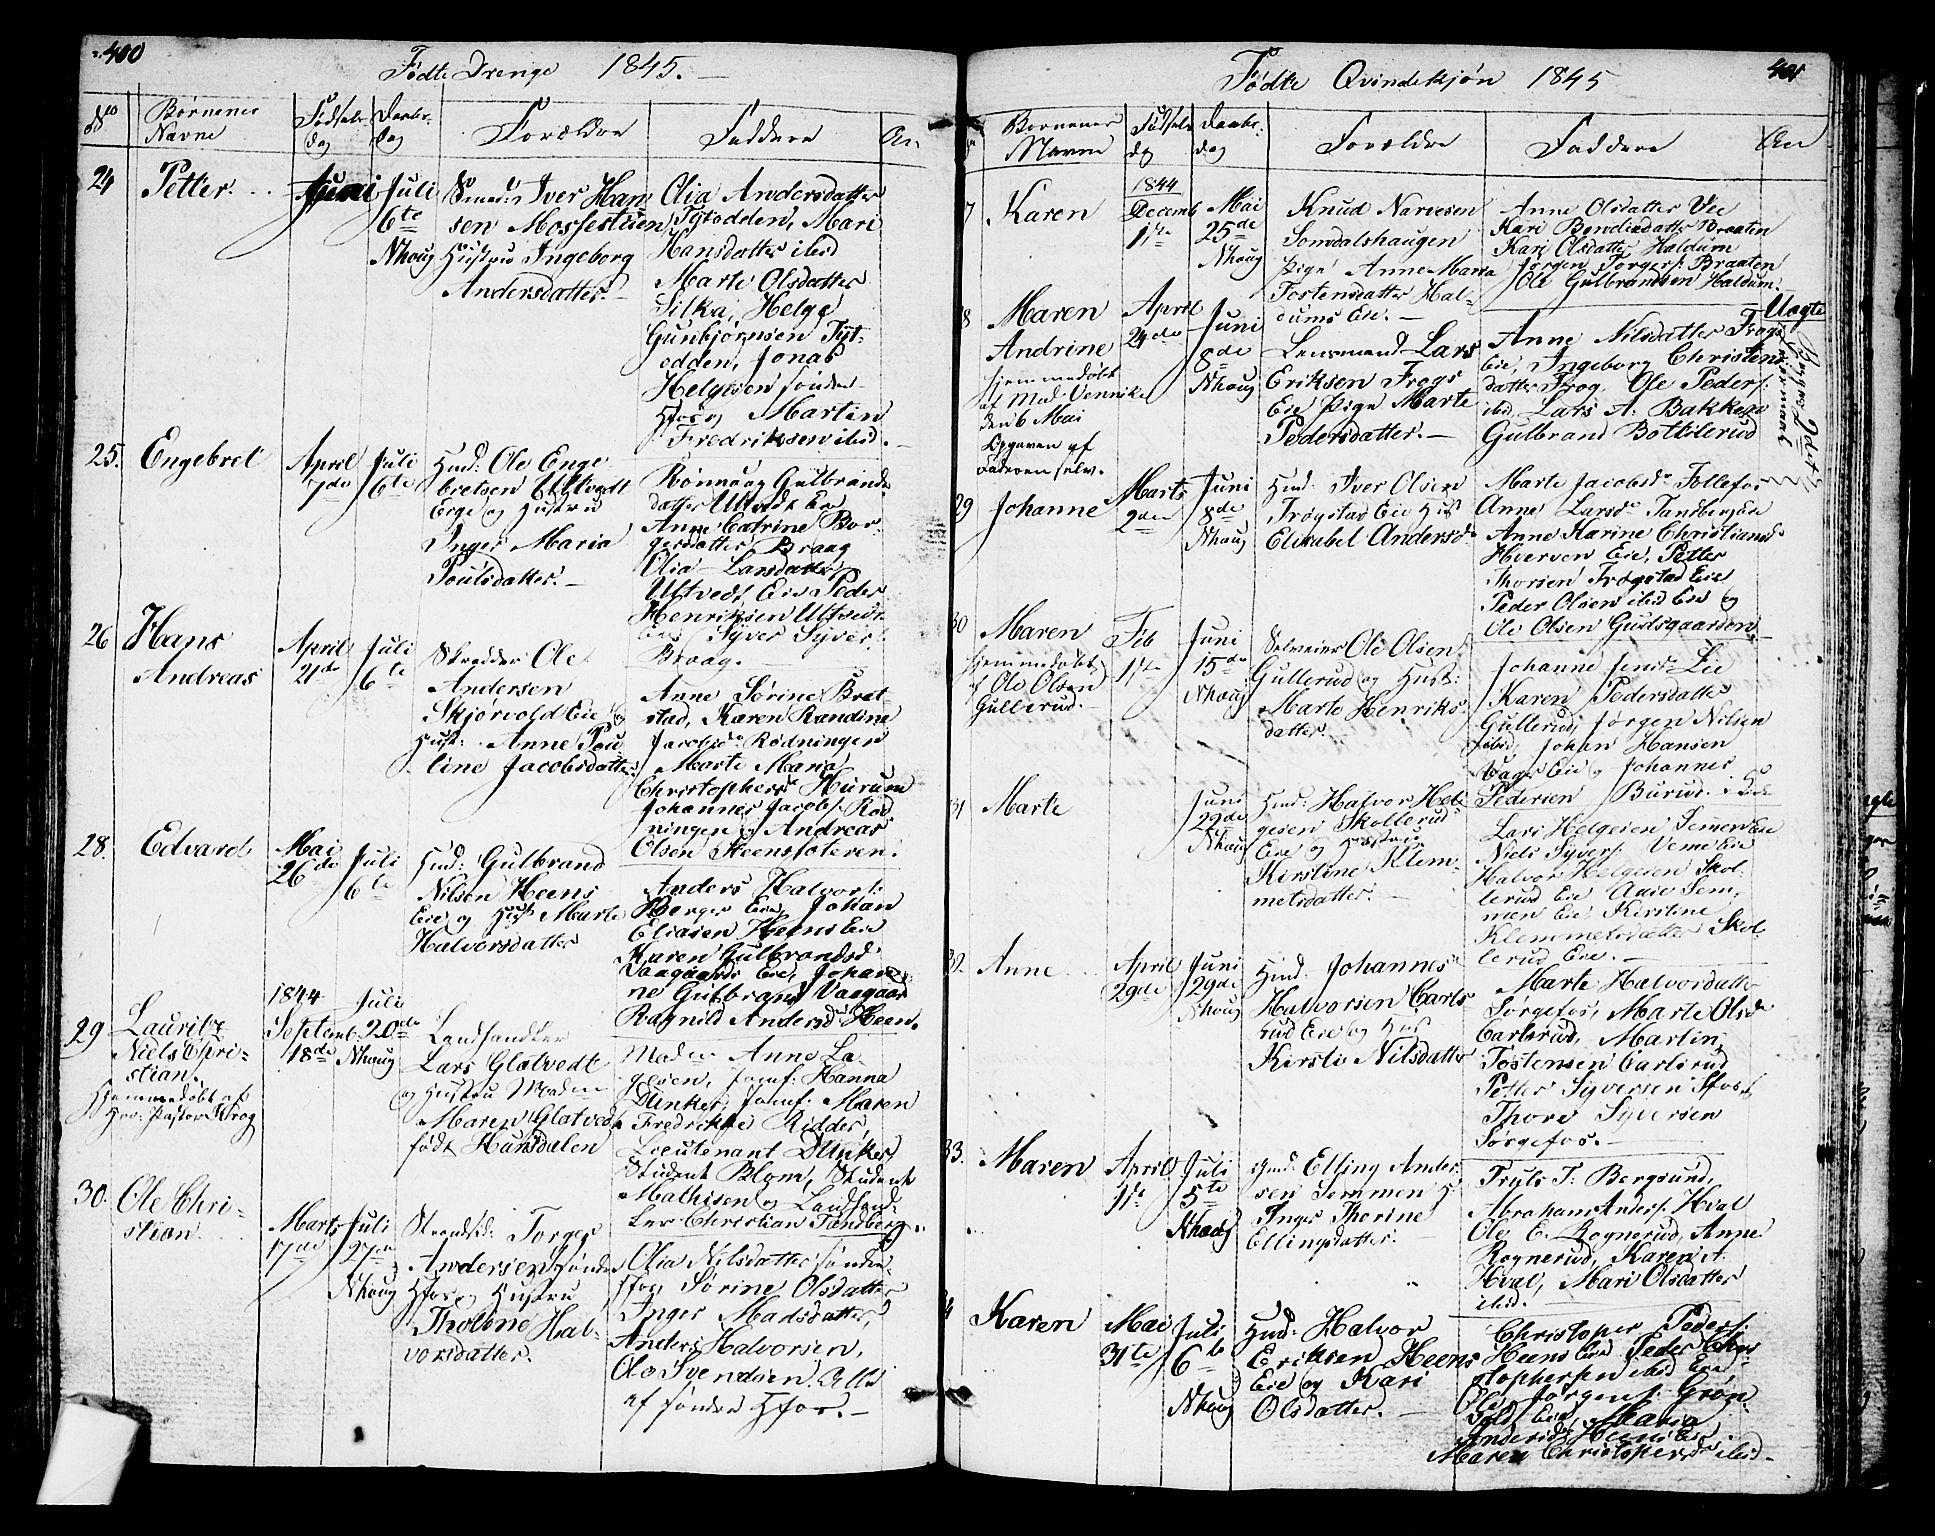 400
Fødte Drenge 1845.
No
Børnenes
Navne
Fødsels
dag
Daabs
dag
Forældre
Faddere
An.
24
Petter
Juni
Juli
6te
Nhoug
Smed: Iver Han
sen Mossestuen
Hustru Ingeborg
Andersdatter.
Olia Andersdatter
Tytodden, Mari
Hansdatter ibid
Marte Olsdatter
Silka, Helge
Gunbjørnsen Tyt-
odden, Jonas
Helgesen søndre
Hfos og Martin
Fredriksen ibid.
25.
Engebret
April
7de
Juli
6te
Hmd: Ole Enge
bretsen Ultvedt
Eie og Hustru
Inger Maria
Poulsdatter.
Rønnaug Gulbrands
datter Ultvedt Eie
Anne Catrine Bor-
gersdatter Braag
Olia Larsdatter
Ultvedt Eie Peder
Henriksen Ultvedt
Eie Syver Syvers:
Braag.
26
Hans
Andreas
April
21de
Juli
6te
Skredder Ole
Andersen
Skjørvold Eie og
Hust: Anne Pou
line Jacobsdatter
Anne Sørine Brat-
stad, Karen Randine
Jacobsd: Rødningen
Marte Maria
Christophersd Hurum
Johannes Jacobs: Rød
ningen og Andreas
Olsen Steensfoteren.
28.
Edvard
Mai
26de
Juli
6te
Hmd: Gulbrand
Nilsen Heens
Eie og Hust Marte
Halvorsdatter
Anders Halvors:
Berger Eie, Johan
Eliasen Heens Eie
Karen Gulbrandsd:
Vaagaards Eie, Johan
ne Gulbrans Vaagaar
Ragnild Andersd Heen.
29
Lauritz
Niels Chri-
stian.
Hjemmedøbt af
Hr: Pastor
1844
Septemb.
18de
Juli
20de
Nhoug
Landhandler
Lars Glatvedt
og Hustru Madm
Maren Glatvedt
født Hansdalen
Madm Anne La
gesen, Jomf: Hanna
Dunker, Jomf: Maren
Fredrikke Ridder,
Lieutenant Dunker
Student Blom, Student
Mathisen og Landhand-
ler Christian Tandberg.
30.
Ole Chri-
stian
Marts
17de
Juli
27de
Nhoug
Strandsid: Torger
Andersen søndre
Hfos og Hustru
Tholene Hal-
vorsdatter.
Olia Nilsdatter søndre
Hfos Sørine Olsdatter
Inger Madsdatter,
Anders Halvorsen,
Ole Svendsen. Alle
af søndre Hfos.
401
Fødte Qvindekjøn 1845
Børnenes
Navne
Fødsels
dg
Daabs.
dag
Forældre
Faddere
An
7
Karen
1844
Decemb
1ste
Mai
25de
Nhoug
Knud Narvesen
Somdalshaugen
Pige Anne Maria
Tostensdatter Hal-
dums Eie.
Anne Olsdatter Vee
Kari Bendixdatter Braaten
Kari Olsdatter Haldum
Jørgen Torgers: Braaten
Ole Gulbrandsen Haldum.
Uægte
8
Maren
Andrine
hjemmedøbt
af Mad. Vennike
den 6 Mai
Opgaven af
Faderen selv.
April
24de
Juni
8de
Nhoug
Lensmand Lars
Eriksen Frogs
Eie Pige Marte
Pedersdatter.
Anne Nilsdatter Frogs
Eie, Ingeborg Christens
datter Frog, Ole Peders:
ibid, Lars A: Bakken
Gulbrand Bottolerud
29
Johanne
Marts
2den
Juni
8de
Nhoug
Hmd: Iver Olsen
Frøgstad Eie Hus
Elisabet Andersd.
Marte Jacobsdr Follefos
Anne Larsdr Tandberg Eie
Anne Karine Christiansd.
Hverven Eie, Petter
Thorsen Frøgstad Eie
Peder Olsen ibid Eie og
Ole Olsen Gudsgaarden
30
Maren
hjemmedøbt
af Ole Olsen
Gullerud.
Feb
1ste
Juni
15de
Nhoug
Selveier Ole Olsen
Gullerud og Hust:
Marte Henriks-
datter.
Johanne Jensdr Lie
Karen Pedersdatter
Gullerud, Jørgen Nilsen
ibid, Johan Hansen
Vager Eie og Johannes
Pedersen Burud
31
Marte
Juni
29de
Nhoug
Hmd: Halvor Hel
gesen Skollerud
Eie og Hustru
Kirstine Klem-
metsdatter.
Lars Helgesen Semen Eie
Niels Syvers: Veme Eie
Halvor Helgesen Skol-
lerud Eie Anne Sem-
men Eie, Kirstine
Klemmetsdatter Skol-
lerud Eie.
32.
Anne
April
29de
Juni
29de
Nhoug
Hmd. Johannes
Halvorsen Carls
rud Eie og Hus
Kirsti Nilsdatter
Marte Halvorsdatter
Sørgefos, Marte Olsdr
Carlsrud, Martin
Tostensen Carlsrud
Petter Syversen
Thore Syversen
Sørgefos.
33.
Maren
April
1ste
Juli
5te
Nhoug
Hmd: Elling Ander
sen Semmen H:
Inger Thorine
Ellingsdatter.
Truls T: Bergsund,
Abraham Anders: Hval
Ole E. Rognerud, Anne
Rognerud, Karen A:
Hval, Mari Olsdatter
ibid.
Karen
Mai
31te
Juli
6te
Nhoug
Hmd: Halvor
Eriksen Heens
Eie og Kari
Olsdatter.
Christopher Peders:
Heens Eie Peder Chri-
stophersen ibid Eie
Ole Jørgens: Grøn-
vold Eie, Maria
Andersdr Heens Eie
Maren Christophersdr ibid.